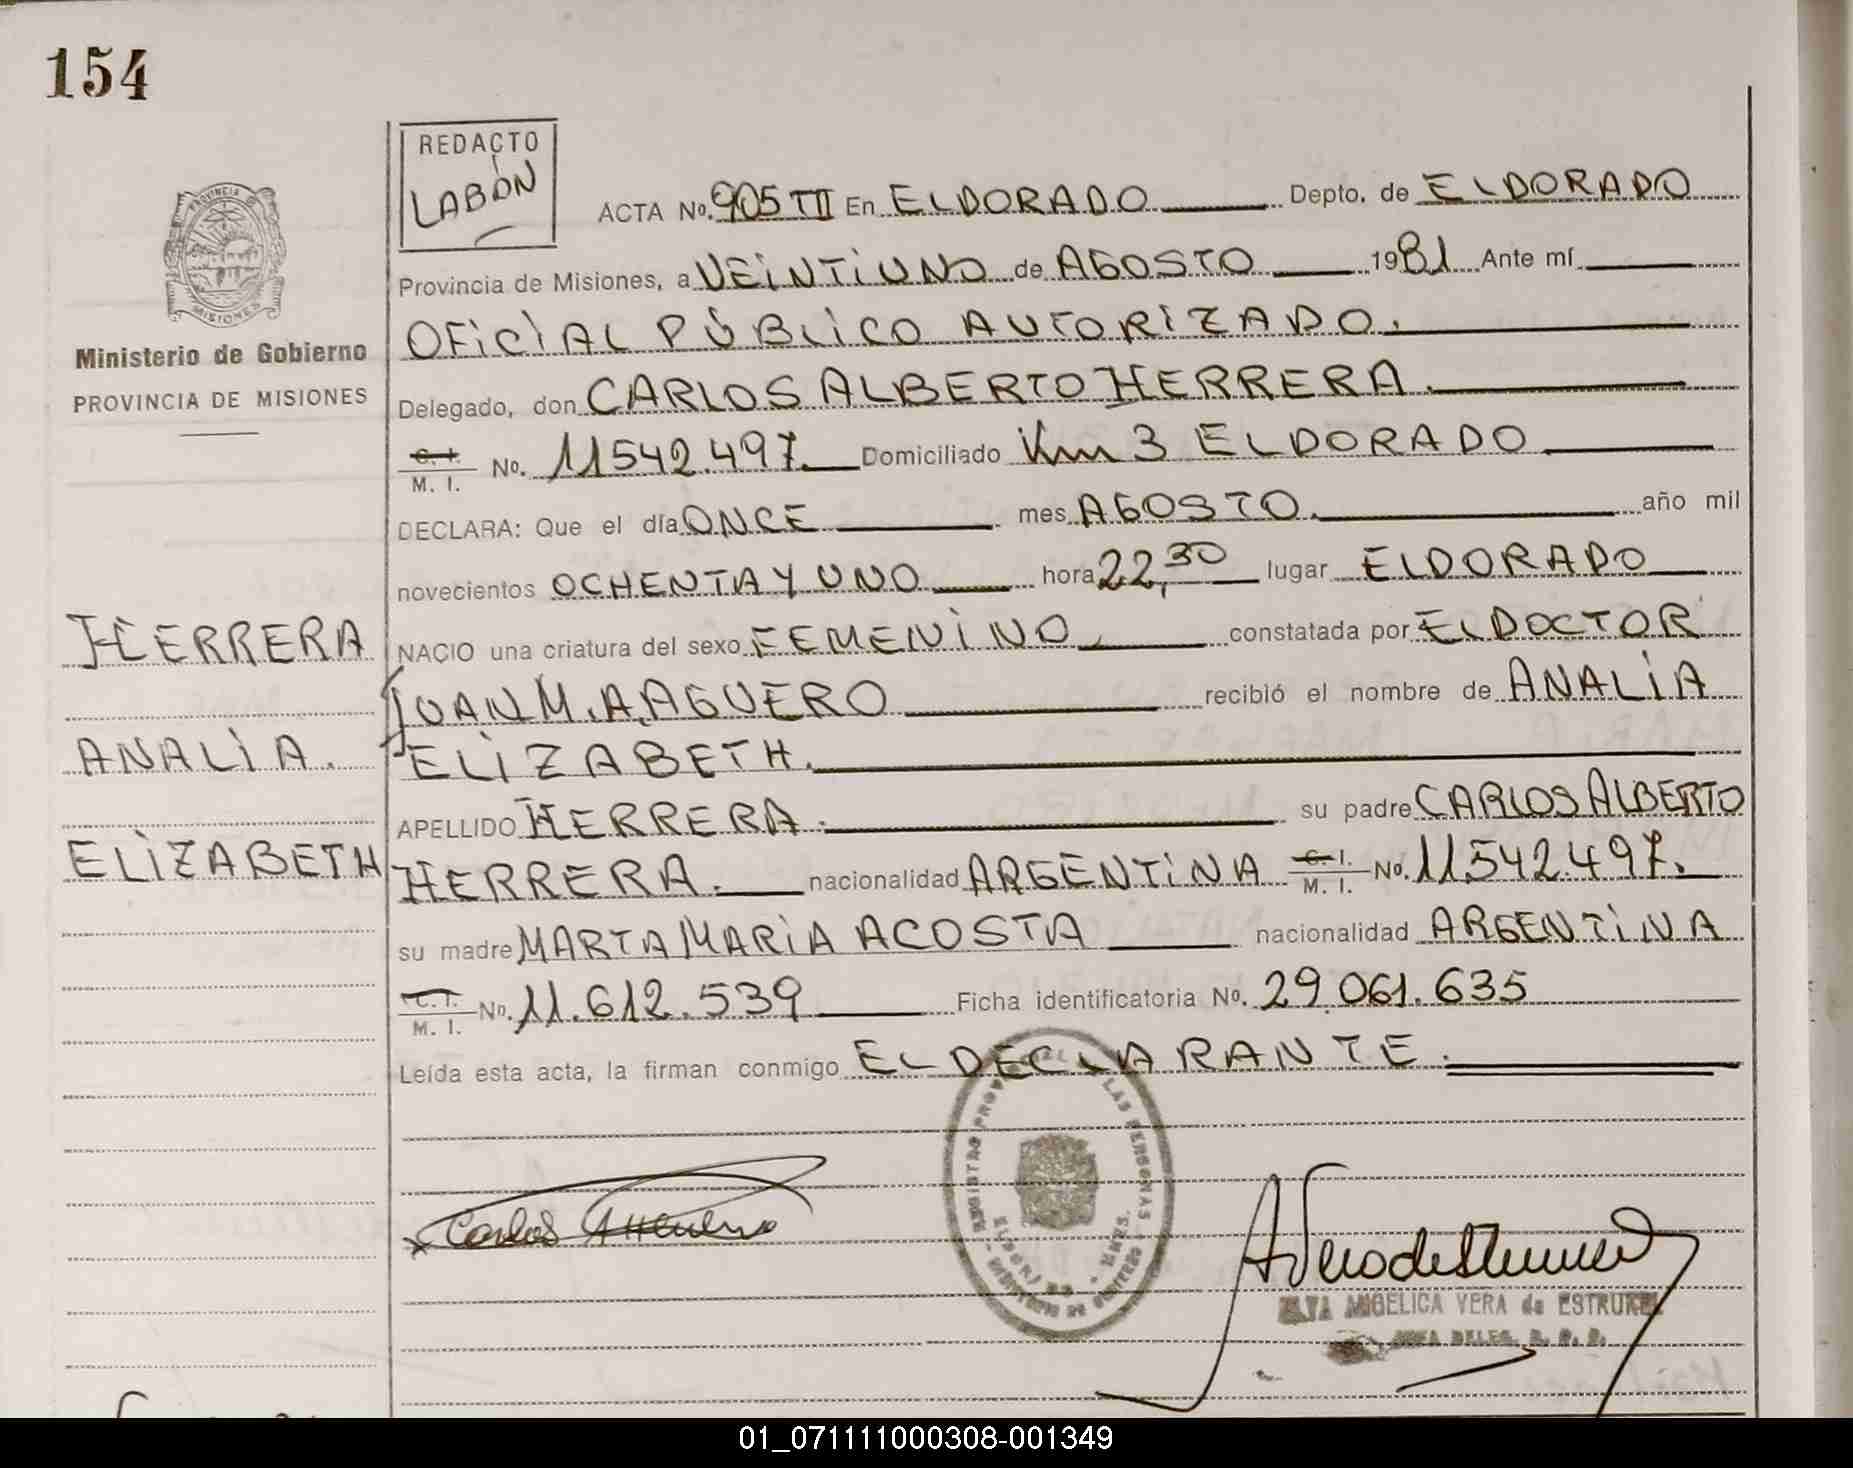 154
REDACTO
LABÓN
ACTA No. 905 TII En ELDORADO Depto. de ELDORADO
Provincia de Misiones, a VEINTIUNO de AGOSTO 1981 Ante mí
OFICIAL PÚBLICO AUTORIZADO.
Delegado, don CARLOS ALBERTO HERRERA.
C. I.
M. I. No. 11542.497. Domiciliado Km 3 ELDORADO
DECLARA: Que el día ONCE mes AGOSTO. año mil
novecientos OCHENTA Y UNO hora 22,30 lugar ELDORADO
NACIO una criatura del sexo FEMENINO. constatada por EL DOCTOR
JUAN M. A. AGUERO recibió el nombre de ANALIA
ELIZABETH.
APELLIDO HERRERA. su padre CARLOS ALBERTO
HERRERA. nacionalidad ARGENTINA C. I.
M. I. No. 11.542.497.
su madre MARTA MARIA ACOSTA nacionalidad ARGENTINA
C. I.
M. I. No. 11.612.539 Ficha identificatoria No. 29.061.635
Leída esta acta, la firman conmigo EL DECLARANTE.
PROVINCIA
MISIONES
Ministerio de Gobierno
PROVINCIA DE MISIONES
HERRERA
ANALIA.
ELIZABETH
Carlos
REGISTRO PROV LAS PERSONAS
ANGELICA VERA de ESTRUKEL
01_071111000308-001349